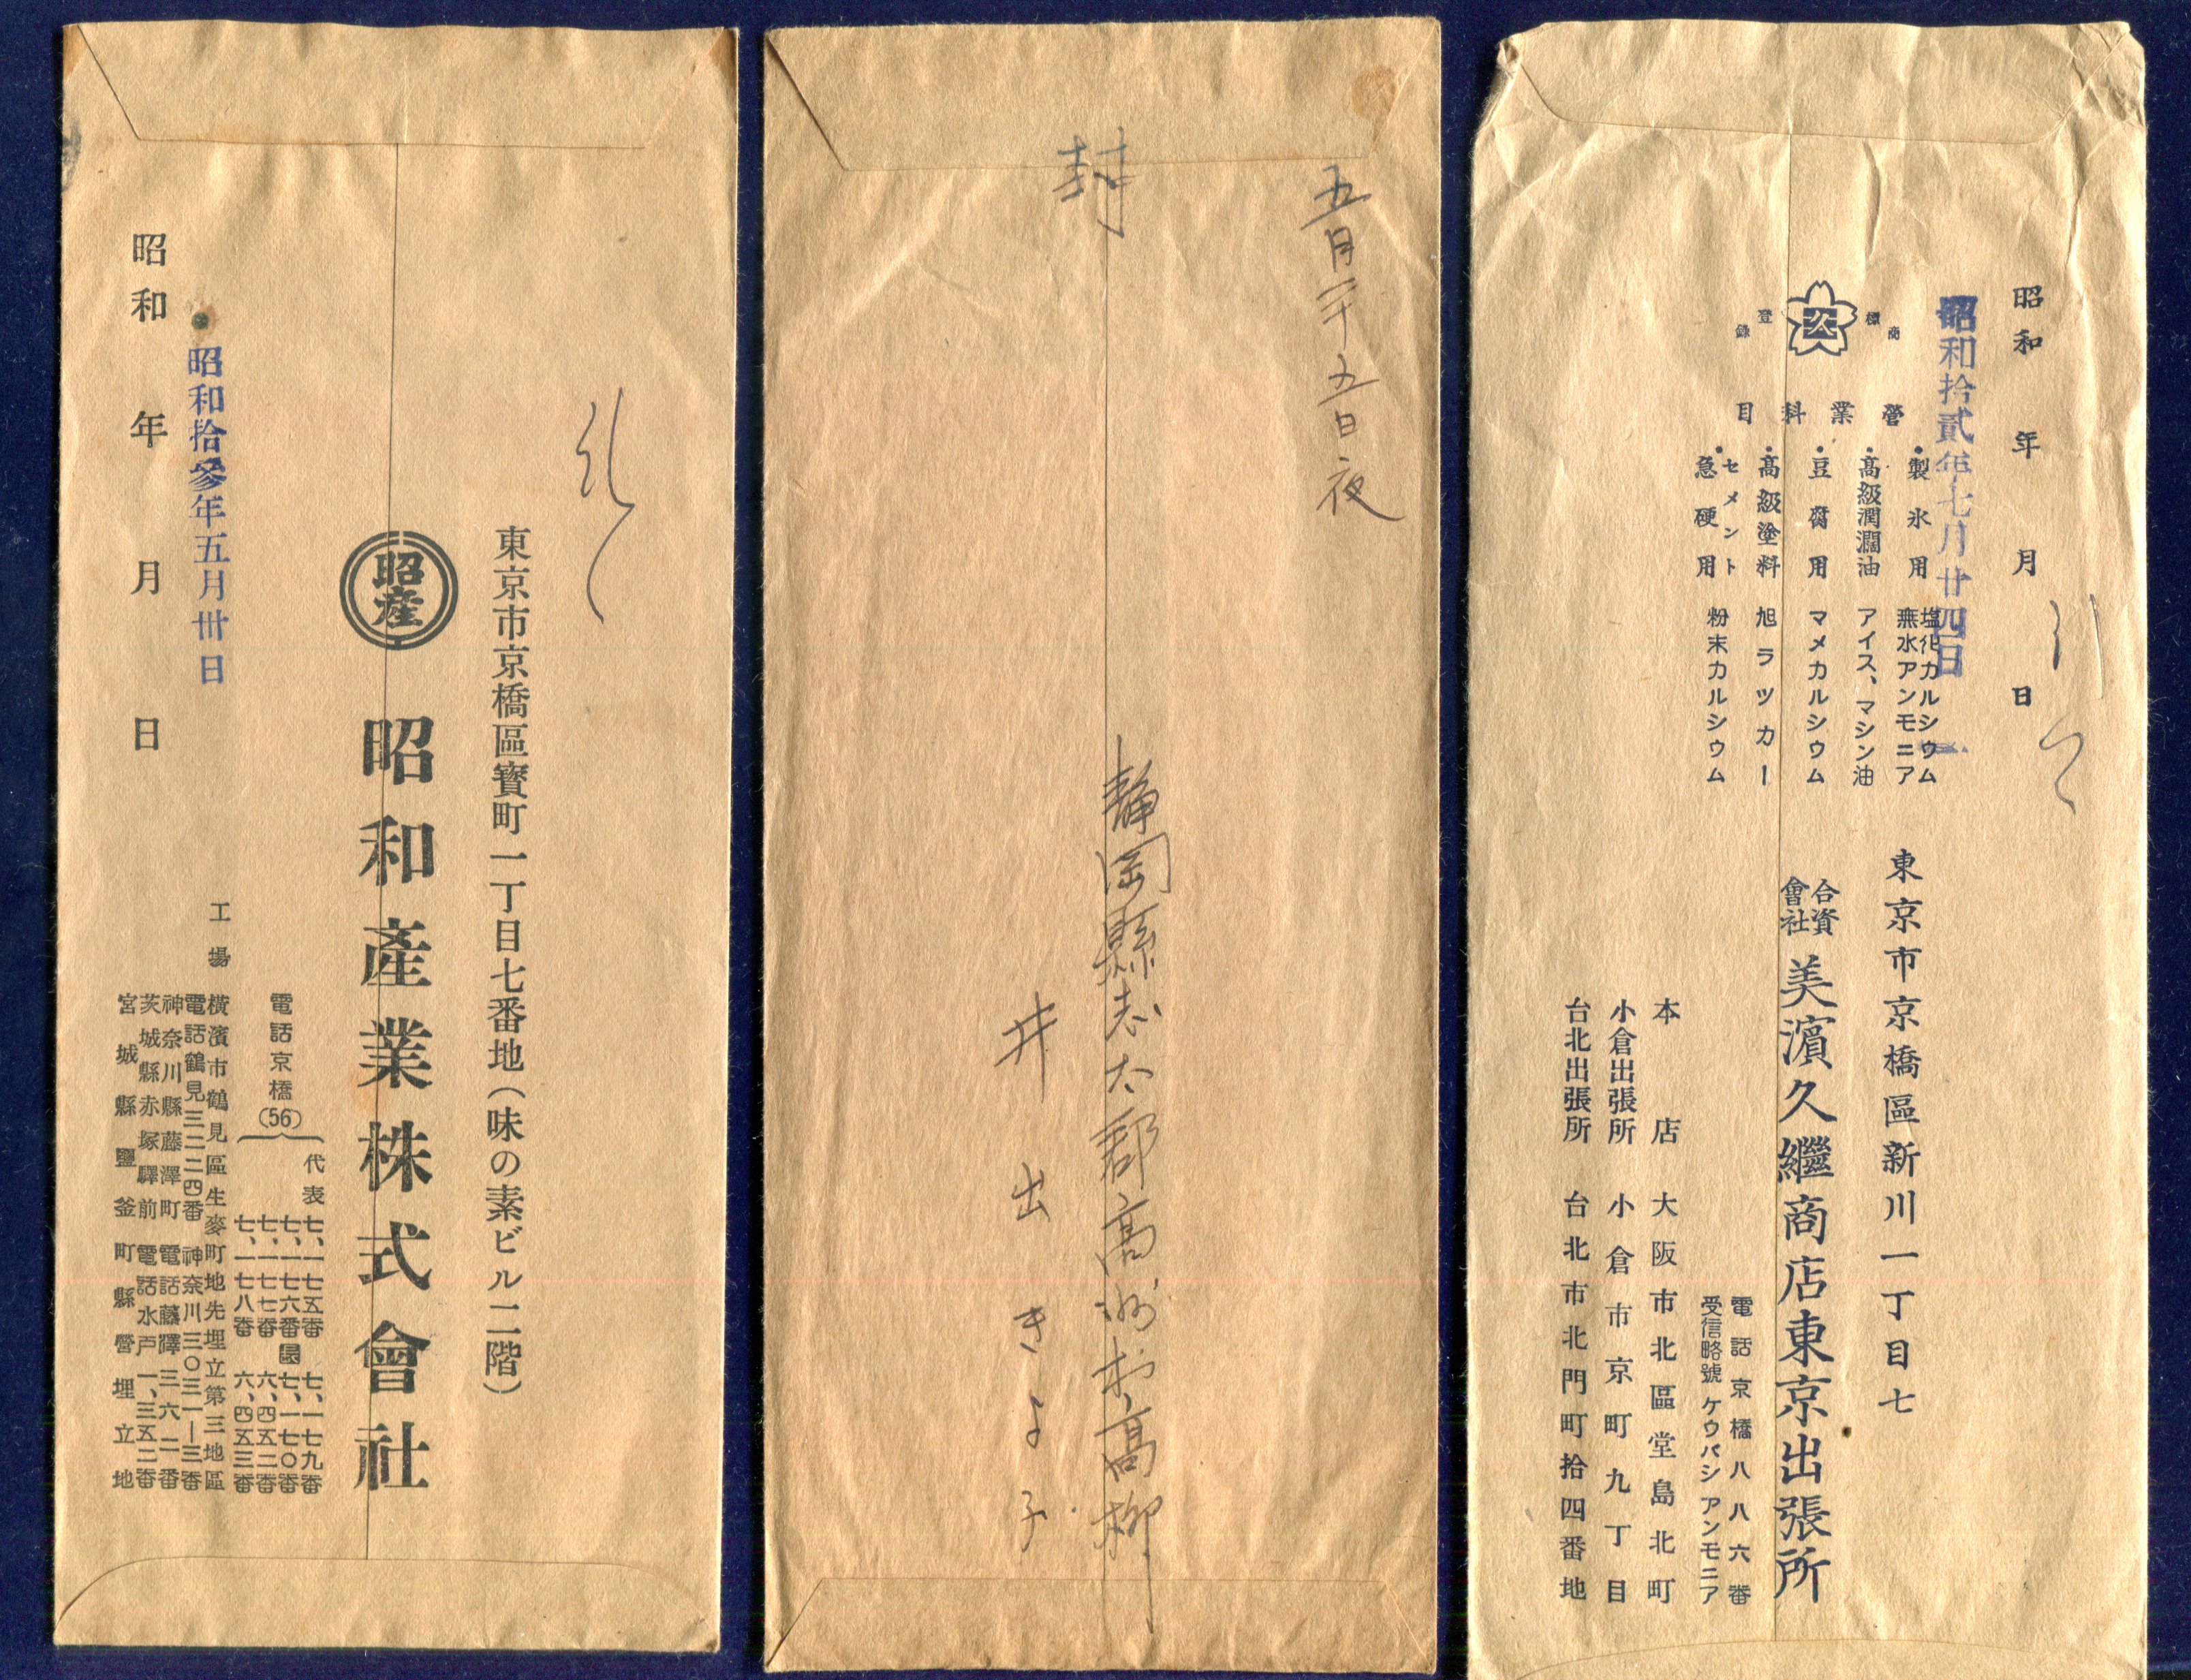 東京市京橋區寳町一丁目七番地(味の素ビル二階)
昭産
昭和產業株式會社
電話京橋(56)
代表七、一七五番 七、一七九番
七、一七六番 長 七、一七〇番
七、一七七番 六、四五二番
七、一七八番 六、四五三番
工場
橫濱市鶴見區生麥町地先埋立第三地區
電話鶴見三二二四番 神奈川三〇三一—三番
神奈川縣藤澤町 電話藤澤三六二番
茨城縣赤塚驛前 電話水戸一、三五二番
宮城縣鹽釜町縣營埋立地
昭和拾參年五月卅日
昭和 年 月 日
五月二十五日夜
封
靜岡縣志太郡高洲村高柳
井出きよ子
昭和 年 月 日
昭和拾貳年七月廿四日
商標
久
登錄
營業科目
・製氷用 塩化カルシウム
無水アンモニア
・高級潤濶油 アイス、マシン油
・豆腐用 マメカルシウム
・高級塗料 旭ラツカー
・セメント急硬用 粉末カルシウム
東京市京橋區新川一丁目七
合資會社 美濱久繼商店東京出張所
電話京橋八八六番
受信略號 ケウバシ アンモニア
本店 大阪市北區堂島北町
小倉出張所 小倉市京町九丁目
台北出張所 台北市北門町拾四番地